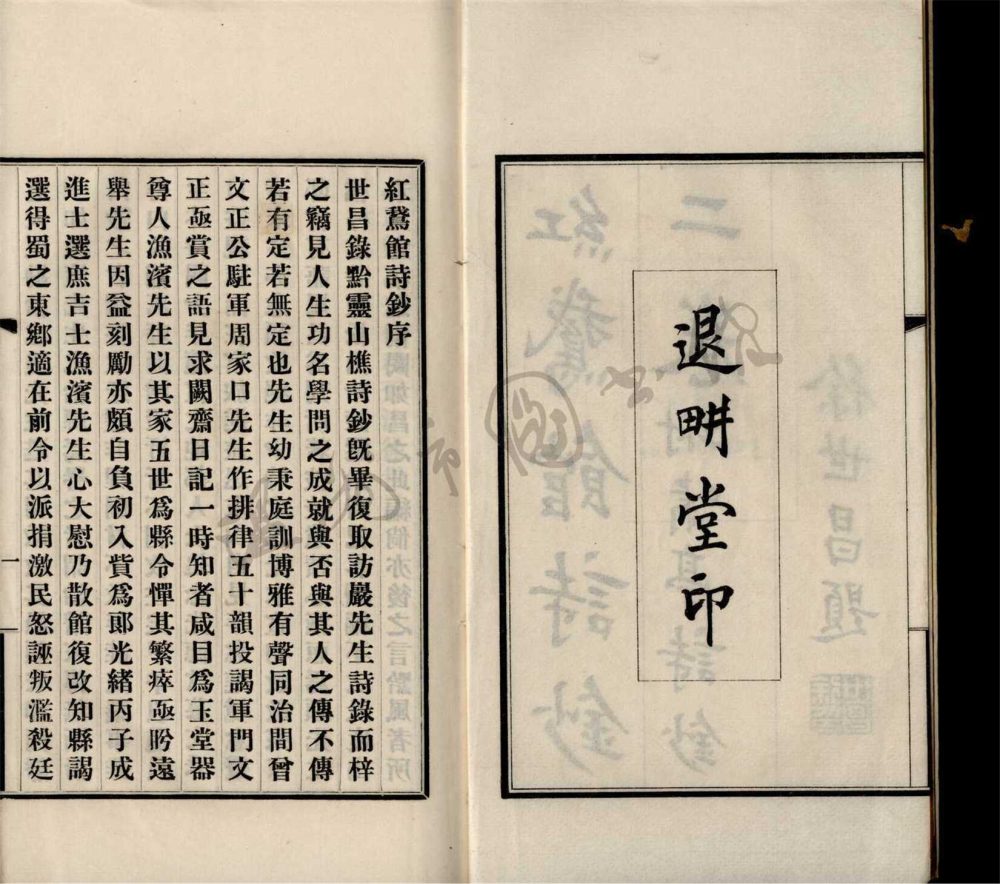 退畊堂印
紅鵞館詩鈔序
世昌錄黔靈山樵詩鈔旣畢復取訪巖先生詩錄而梓
之竊見人生功名學問之成就與否與其人之傳不傳
若有定若無定也先生幼秉庭訓博雅有聲同治間曾
文正公駐軍周家口先生作排律五十韻投謁軍門文
正亟賞之語見求闕齋日記一時知者咸目爲玉堂器
尊人漁濱先生以其家五世爲縣令憚其繁瘁亟盻遠
舉先生因益刻勵亦頗自負初入貲爲郎光緒丙子成
進士選庶吉士漁濱先生心大慰乃散館復改知縣謁
選得蜀之東鄉適在前令以派捐激民怒誣叛濫殺廷
一